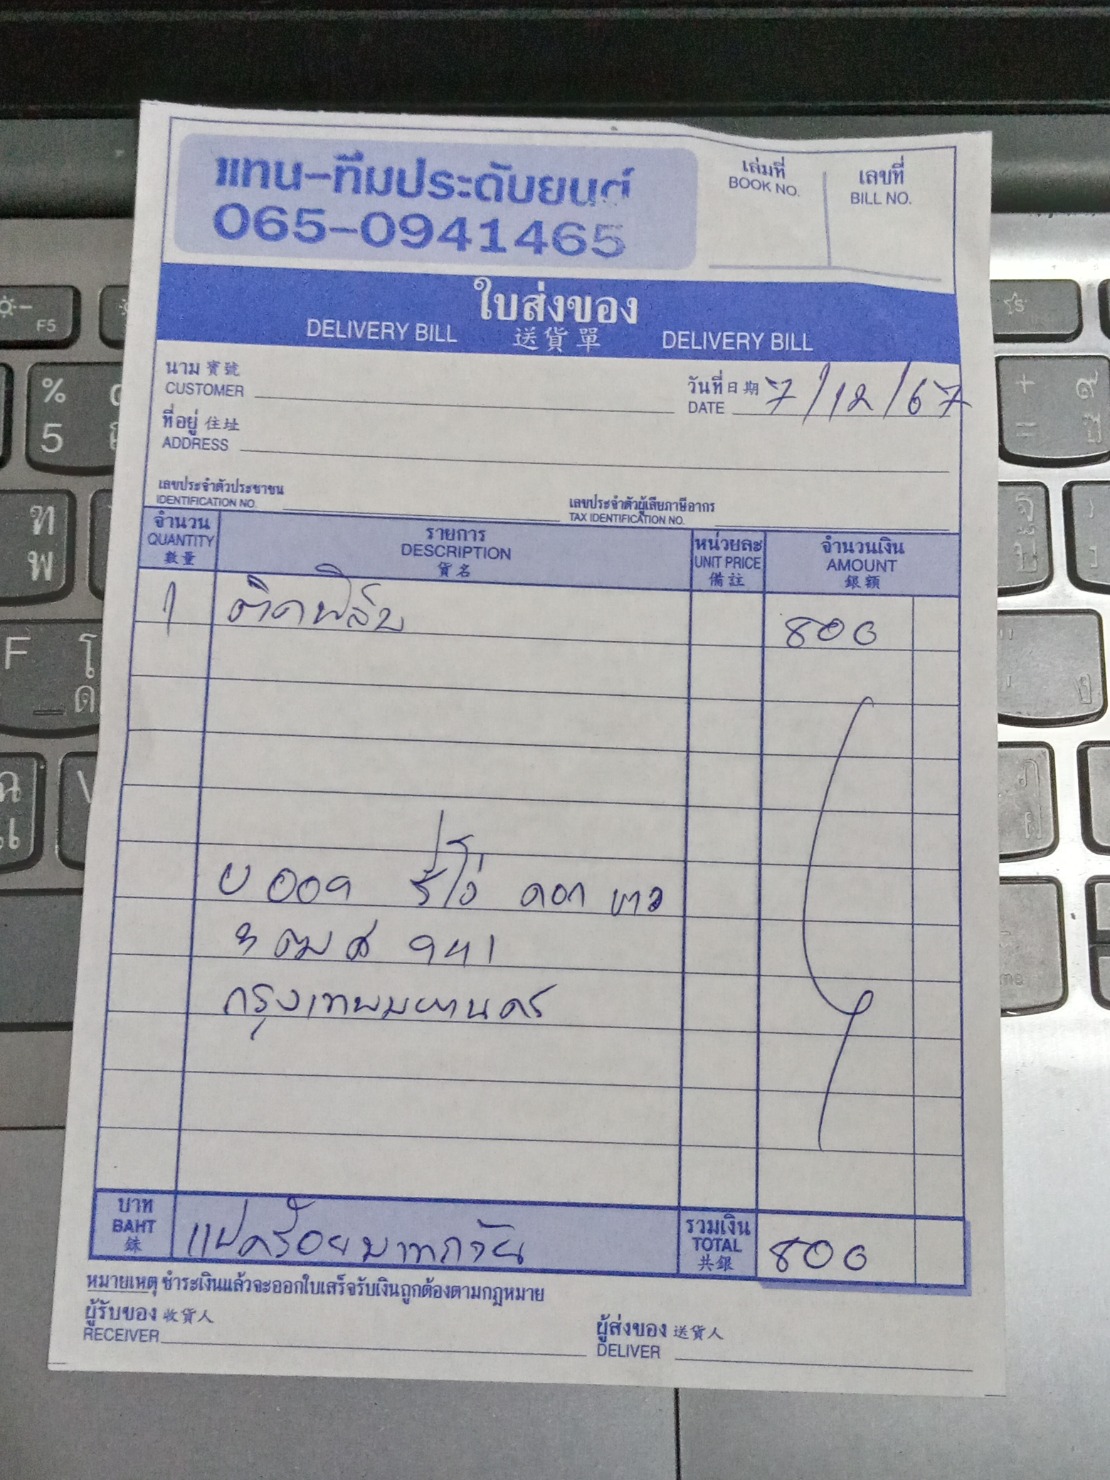 แทน-ทีมประดับยนต์
065-0941465
เล่มที่
BOOK NO.
เลขที่
BILL NO.
ใบส่งของ
DELIVERY BILL 送貨單 DELIVERY BILL
นาม 寶號
CUSTOMER
วันที่ 日期 7/12/67
DATE
ที่อยู่ 住址
ADDRESS
เลขประจำตัวประชาชน
IDENTIFICATION NO.
เลขประจำตัวผู้เสียภาษีอากร
TAX IDENTIFICATION NO.
จำนวน
QUANTITY
數量
รายการ
DESCRIPTION
貨名
หน่วยละ
UNIT PRICE
備註
จำนวนเงิน
AMOUNT
銀額
1 ติดฟิล์ม 800
941
กรุงเทพมหานคร
บาท
BAHT
銖
แปดร้อยบาทถ้วน
รวมเงิน
TOTAL
共銀
800
หมายเหตุ ชำระเงินแล้วจะออกใบเสร็จรับเงินถูกต้องตามกฎหมาย
ผู้รับของ 收貨人
RECEIVER
ผู้ส่งของ 送貨人
DELIVER